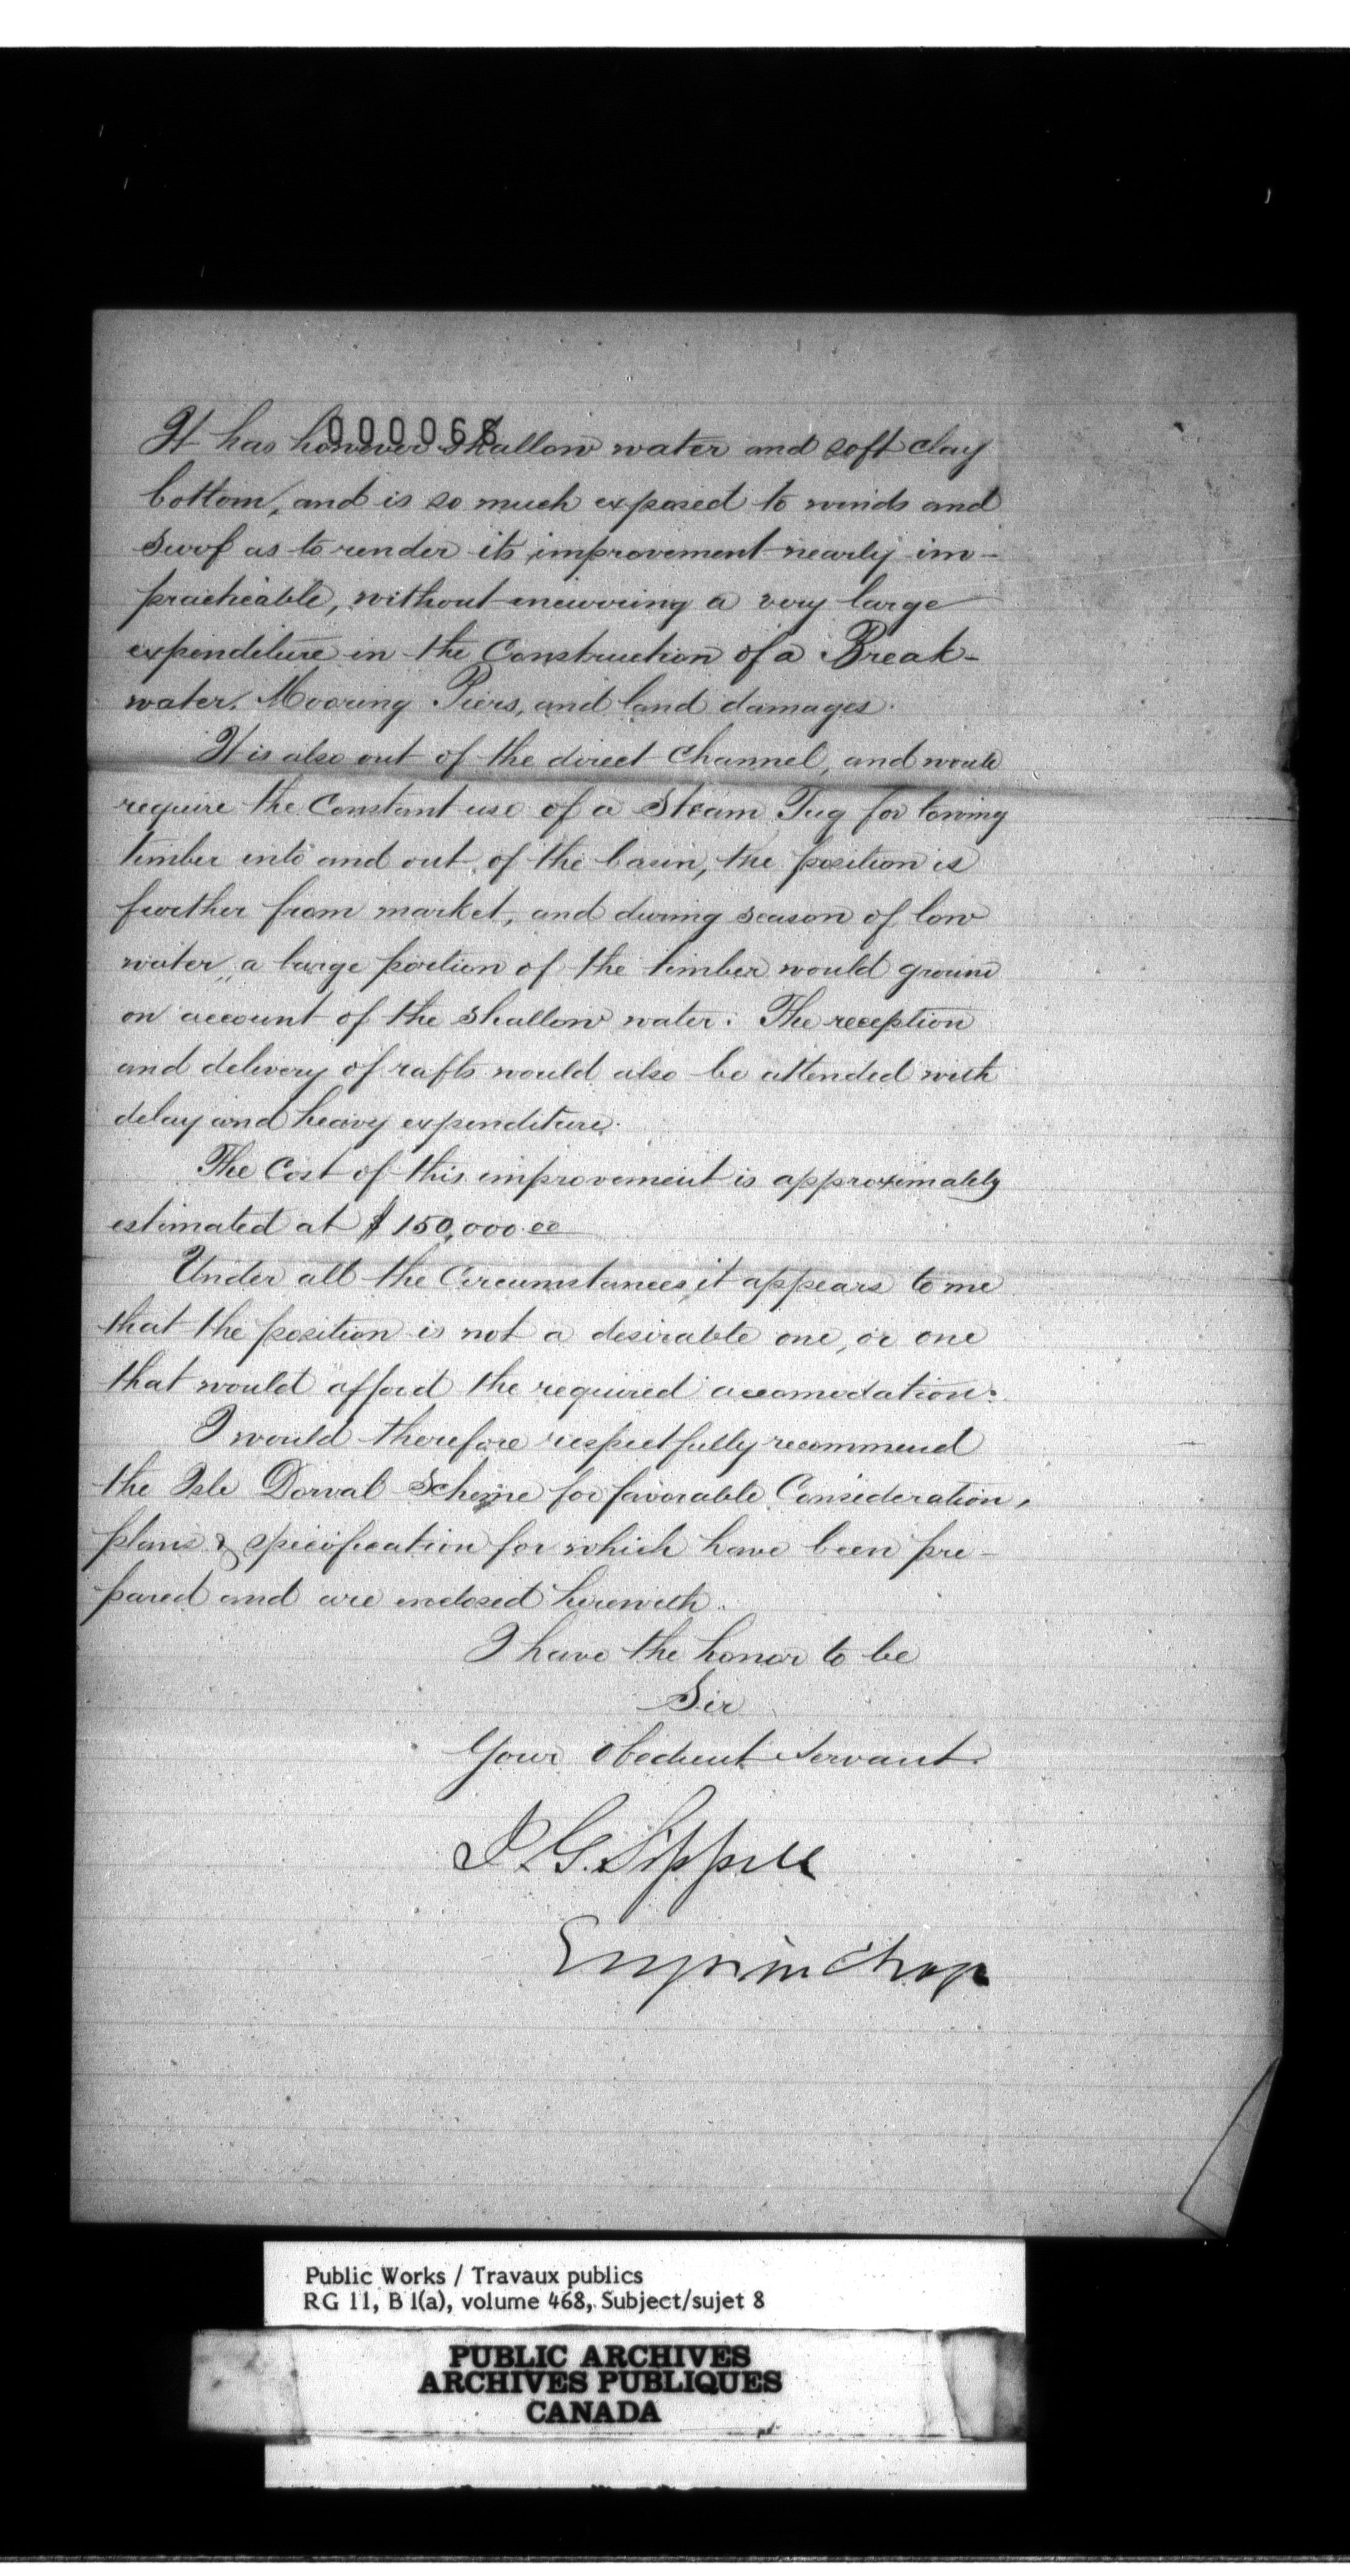 000066
It has however shallow water and soft clay
bottom, and is so much exposed to winds and
as to render its improvement nearly im-
practicable, without incurring a very large
expenditure in the Construction of a Break-
water. Mooring Piers, and land damages.
It is also out of the direct Channel, and would
require the Constant use of a Steam Tug for towing
timber into and out of the basin, the position is
further from market, and during season of low
water, a large portion of the timber would ground
on account of the shallow water. The reception
and delivery of rafts would also be attended with
delay and heavy expenditure.
The Cost of this improvement is approximately
estimated at $150,000.00
Under all the Circumstances, it appears to me
that the position is not a desirable one, or one
that would afford the required accomodation.
I would therefore respectfully recommend
the Isle Dorval Scheme for favorable Consideration,
plans & specification for which have been pre-
pared and are enclosed herewith.
I have the honor to be
Sir
Your Obedient Servant.
J. G. Sippell
Engr in Charge
Public Works / Travaux publics
RG 11, B 1(a), volume 468, Subject/sujet 8
PUBLIC ARCHIVES
ARCHIVES PUBLIQUES
CANADA